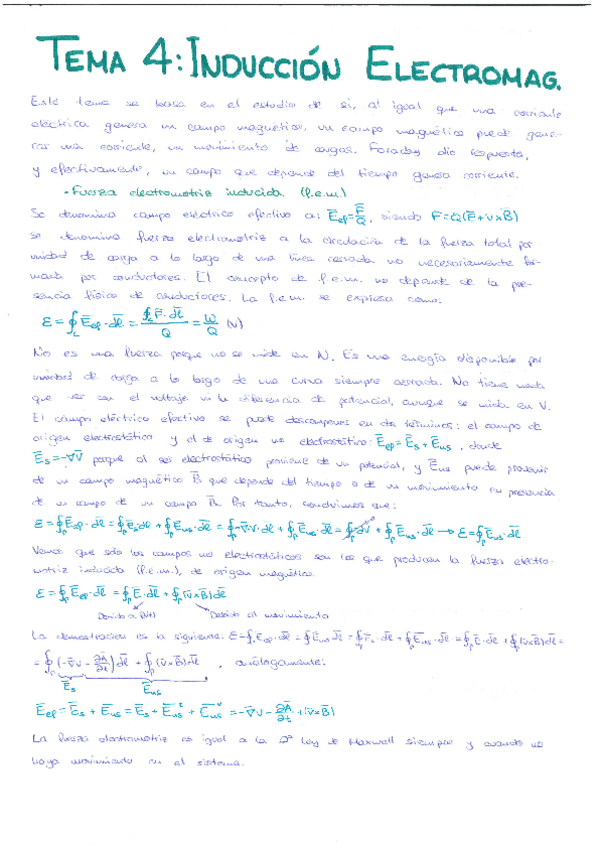 TEMA 4: INDUCCIÓN ELECTROMAG.
Este tema se basa en el estudio de si, al igual que una corriente
eléctrica genera un campo magnético, un campo magnético puede gene-
rar una corriente, un movimiento de cargas. Faraday dio respuesta,
y efectivamente, un campo que depende del tiempo genera corriente.
·Fuerza electromotriz inducida (f.e.m)
Se denomina campo eléctrico efectivo a: E̅ef = F̅/Q, siendo F=Q(E̅+v×B̅)
se denomina fuerza electromotriz a la circulación de la fuerza total por
unidad de carga a lo largo de una línea cerrada no necesariamente for-
mada por conductores. El concepto de f.e.m. no depende de la pre-
sencia física de conductores. La f.e.m. se expresa como:
ε = ∮L E̅ef · dl̅ = ∮L F̅ · dl̅ / Q = W/Q (V)
No es una fuerza porque no se mide en N. Es una energía disponible por
unidad de carga a lo largo de una curva siempre cerrada. No tiene nada
que ver con el voltaje ni la diferencia de potencial, aunque se mida en V.
El campo eléctrico efectivo se puede descomponer en dos términos: el campo de
origen electrostático y el de origen no electrostático: E̅ef = E̅s + E̅us, donde
E̅s = -∇̅V porque al ser electrostático proviene de un potencial, y E̅us puede provenir
de un campo magnético B̅ que depende del tiempo o de un movimiento en presencia
de un campo de un campo B̅. Por tanto, concluimos que:
ε = ∮p E̅ef · dl̅ = ∮p E̅s dl̅ + ∮p E̅us · dl̅ = ∮p -∇̅V · dl̅ + ∮p E̅us · dl̅ = ∮p -dV + ∮p E̅us · dl̅ → ε = ∮p E̅us · dl̅
Vemos que sólo los campos no electrostáticos son los que producen la fuerza electro-
motriz inducida (f.e.m.), de origen magnético.
ε = ∮p E̅ef · dl̅ = ∮p E̅ · dl̅ + ∮p (v̅×B̅) dl̅
Debido a B(t) Debido al movimiento
La demostración es la siguiente: ε = ∮p E̅ef · dl̅ = ∮ E̅us dl̅ = ∮p dl̅ + ∮p E̅us · dl̅ = ∮p E̅ · dl̅ + ∮p (v̅×B̅) dl̅ =
= ∮p (-∇̅V - ∂A̅/∂t) dl̅ + ∮p (v̅×B̅) dl̅ , análogamente:
E̅s E̅us
E̅ef = E̅s + E̅us = E̅s + E̅us + E̅us = -∇̅V - ∂A̅/∂t + (v̅×B̅)
La fuerza electromotriz es igual a la 2ª Ley de Maxwell siempre y cuando no
haya movimiento en el sistema.